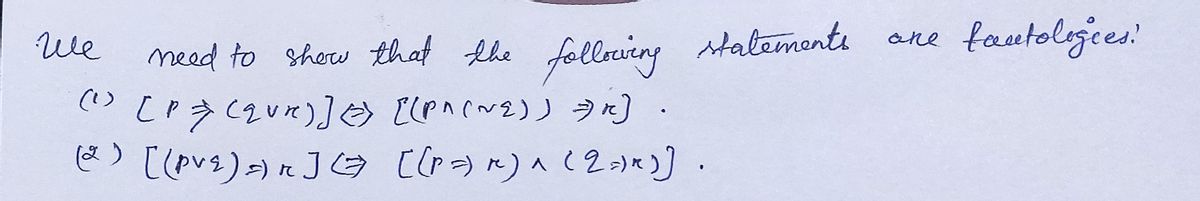 We need to show that the following statements are tautologies:
(1) [P ⇒ (q ∨ r)] ⇔ [(P ∧ (~q)) ⇒ r] .
(2) [(P ∨ q) ⇒ r] ⇔ [(P ⇒ r) ∧ (q ⇒ r)] .